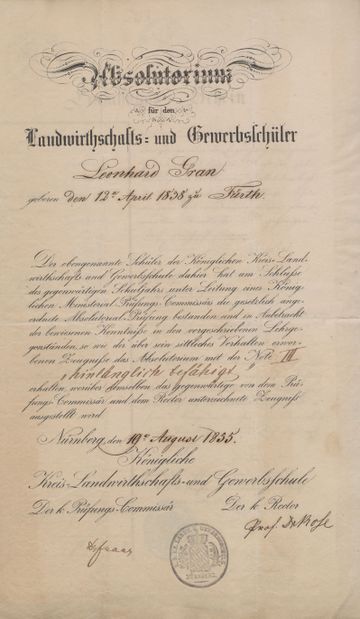 Absolutorium
für den
Landwirthschafts= und Gewerbsschüler
Leonhard Gran
geboren den 12n April 1838 zu Fürth.
Der obengenannte Schüler der Königlichen Kreis-Land-
wirthschafts und Gewerbsschule dahier hat am Schlusse
des gegenwärtigen Schuljahrs unter Leitung eines König-
lichen Ministerial Prüfungs-Commissärs die gesetzlich ange-
ordnete Absolutorial Prüfung bestanden und in Anbetracht
der bewiesenen Kenntnisse in den vorgeschriebenen Lehrge-
genständen, so wie der über sein sittliches Verhalten erwor-
benen Zeugnisse das Absolutorium mit der Note III
"hinlänglich befähigt"
erhalten, worüber demselben das gegenwärtige von dem Prü-
fungs-Commissär und dem Rector unterzeichnete Zeugniß
ausgestellt wird.
Nürnberg, den 19n August 1855.
Königliche
Kreis-Landwirthschafts-und Gewerbsschule
Der k. Prüfungs-Commissär Der k. Rector
Prof. Dr Rose
NÜRNBERG